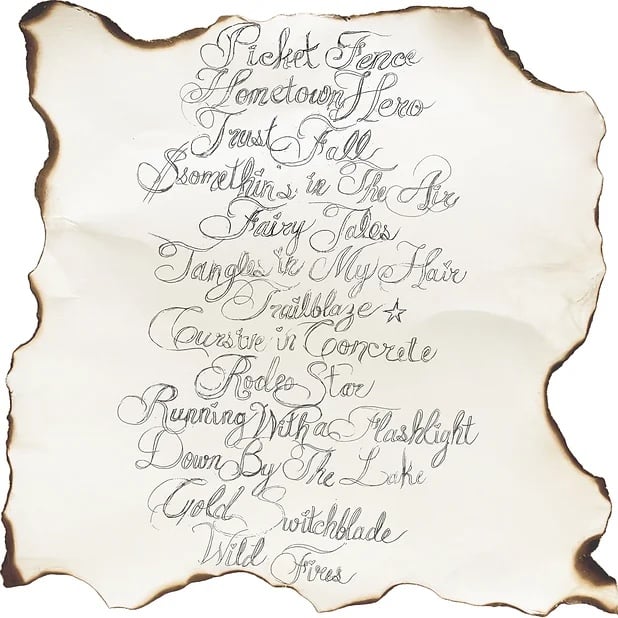 Picket Fence
Hometown Hero
Trust Fall
Somethin's in The Air
Fairy Tales
Tangles in My Hair
Trailblaze ☆
Cursive in Concrete
Rodeo Star
Running With a Flashlight
Down By The Lake
Gold Switchblade
Wild Fires